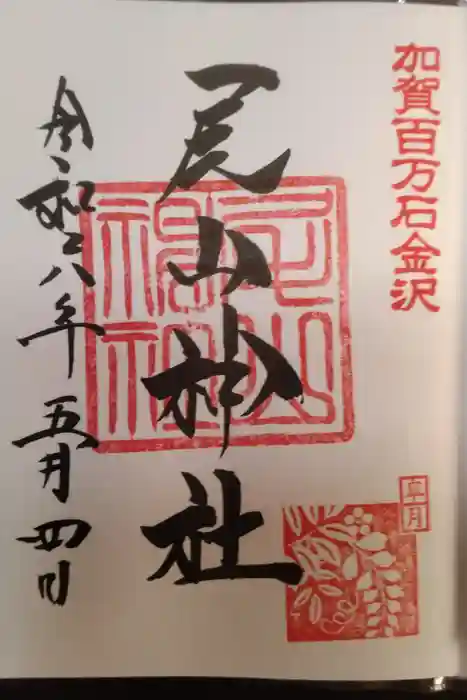 加賀百万石金沢
皐月
尾山神社
尾山神社
令和八年五月四日